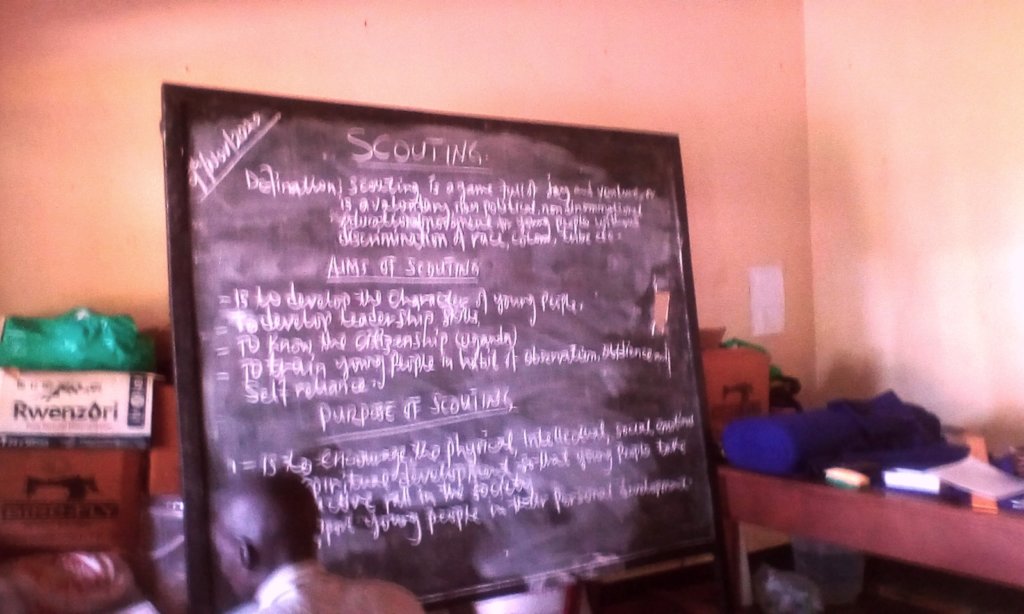 SCOUTING.
Defination; Scouting is a game full of
is a voluntary non political, non
educational movement for young people without
discrimination of race, colour, tribe etc.
AIMS OF SCOUTING
= Is to develop the character of young people.
= To develop leadership skills,
= To know the citizenship (uganda)
= To train young people in habit of observation, and
Self reliance.
PURPOSE OF SCOUTING
1 = Is to encourage the physical, Intellectual, social, emotional
spiritual development, so that young people take
full in the society
young people in their personal development.
Rwenzori